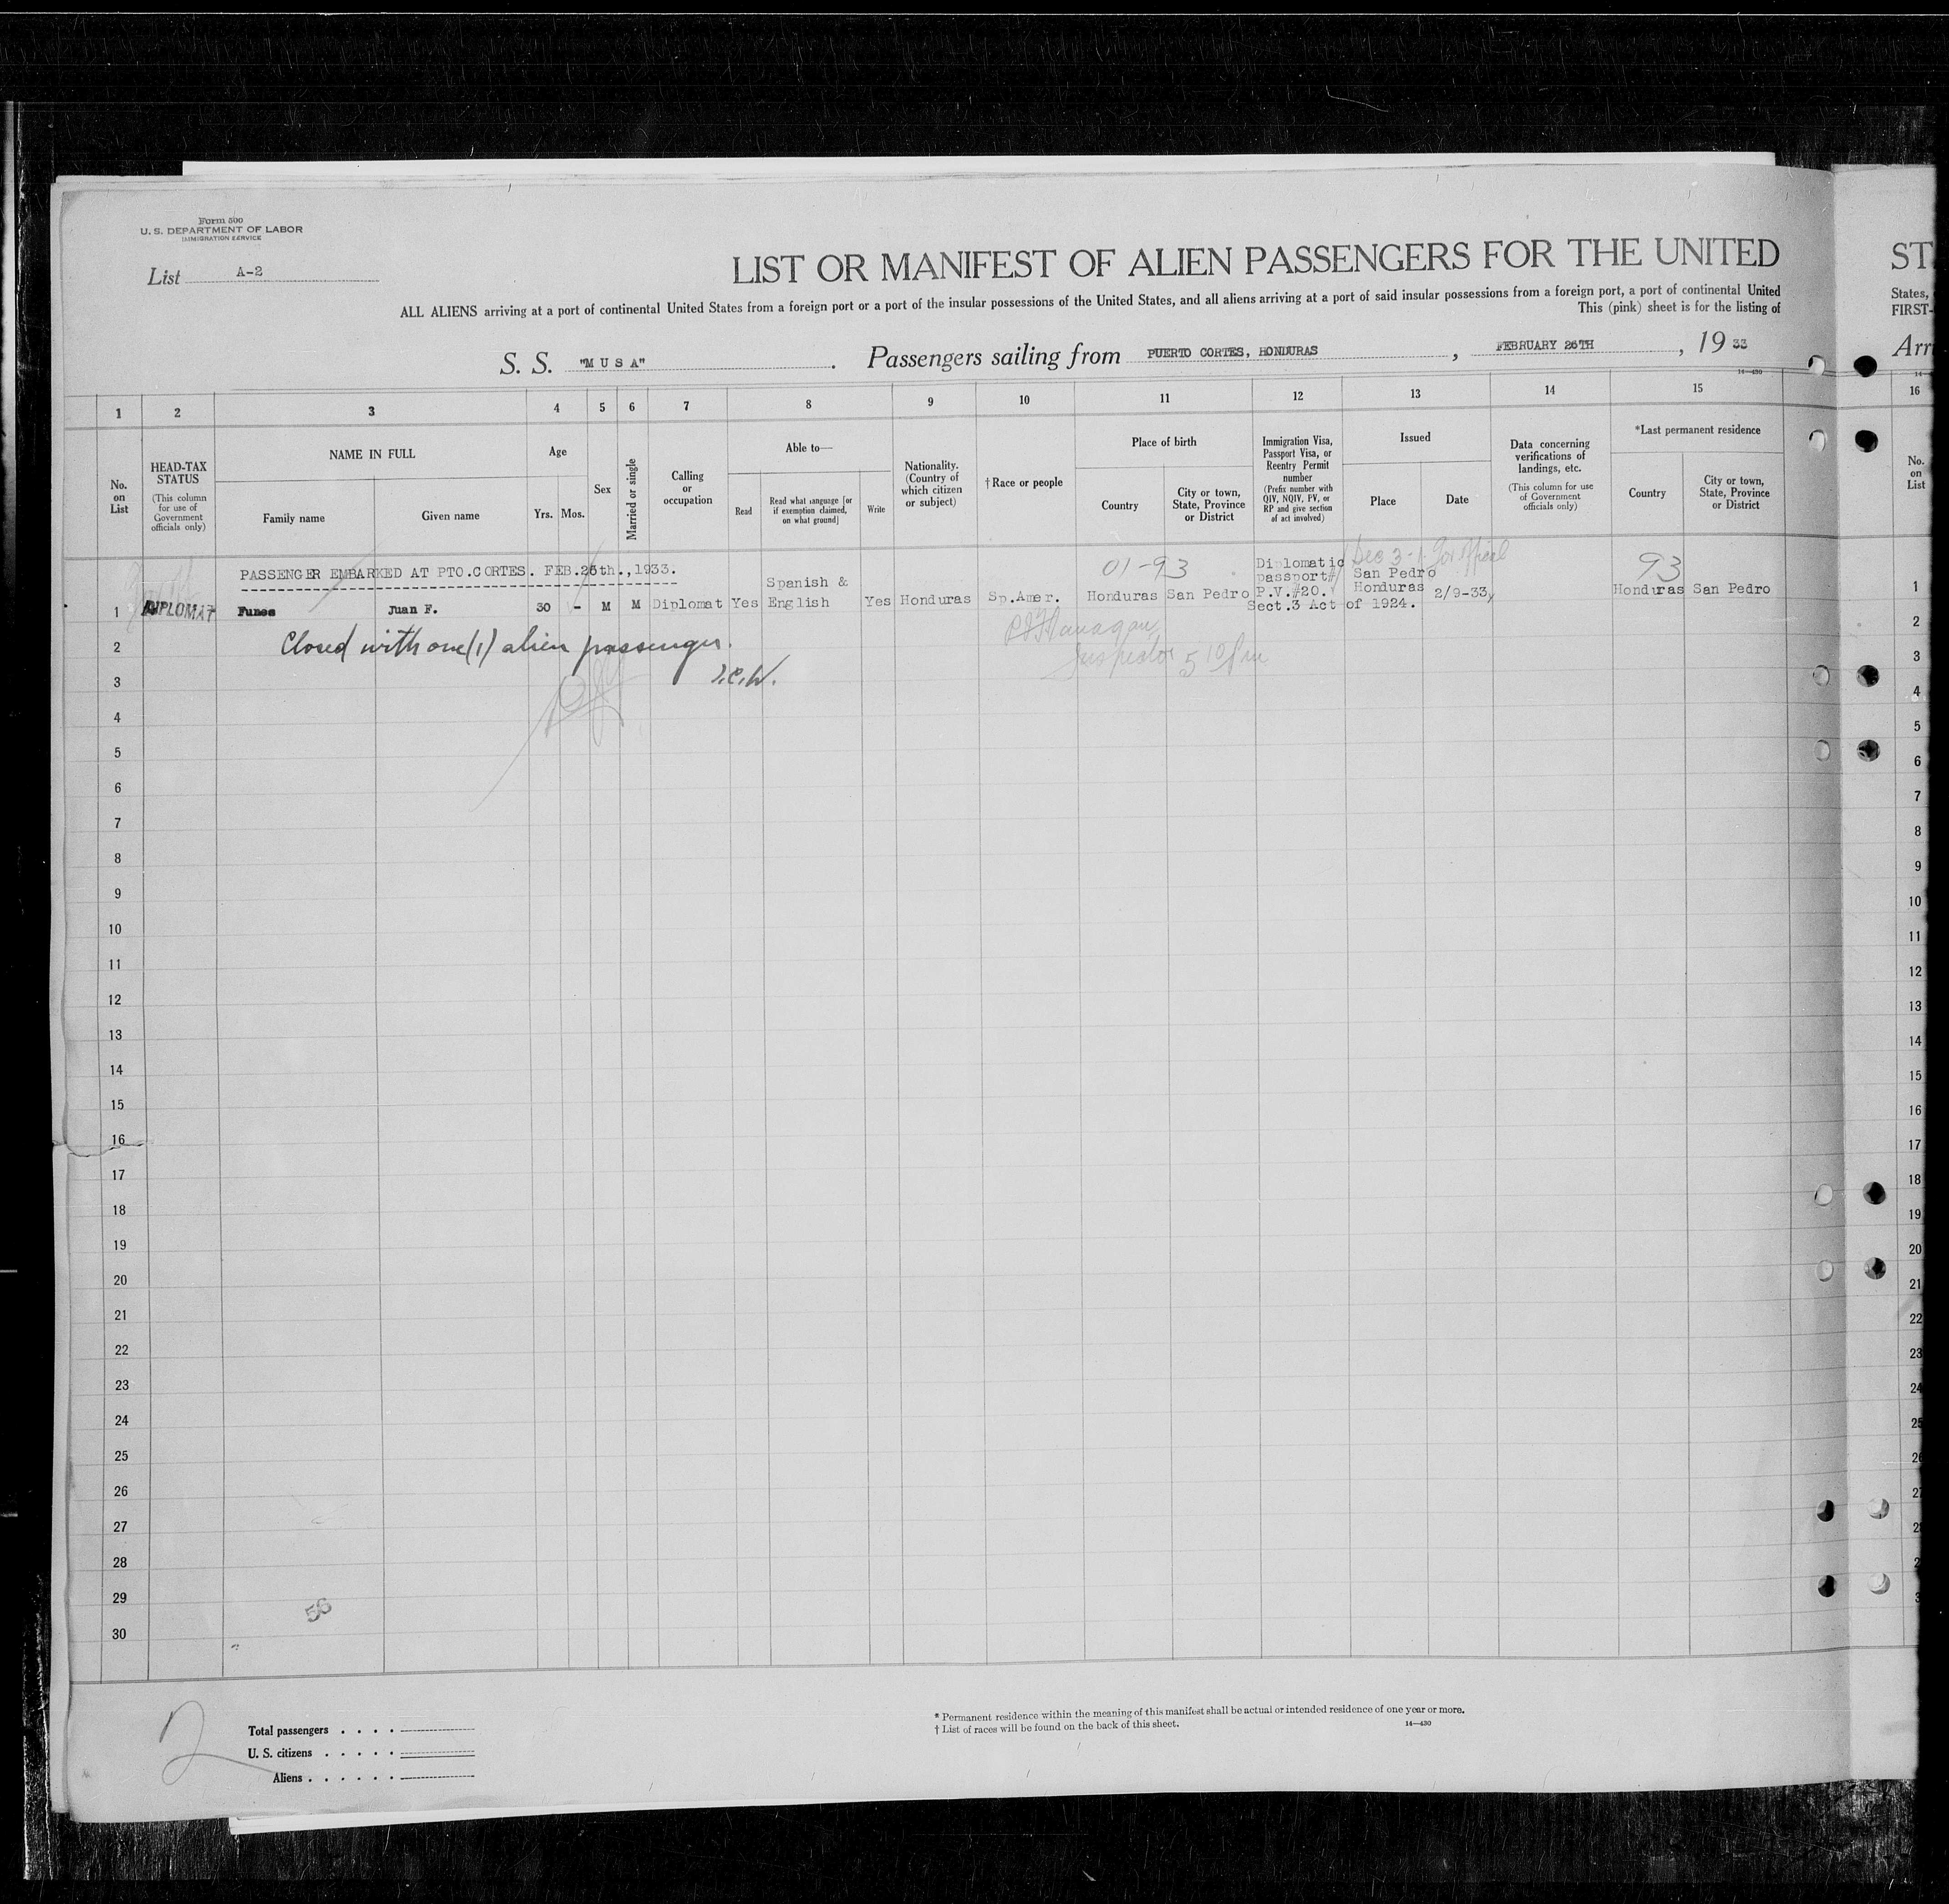 Form 500
U. S. DEPARTMENT OF LABOR
IMMIGRATION SERVICE
List A-2
LIST OR MANIFEST OF ALIEN PASSENGERS FOR THE UNITED
ST
ALL ALIENS arriving at a port of continental United States from a foreign port or a port of the insular possessions of the United States, and all aliens arriving at a port of said insular possessions from a foreign port, a port of continental United
States,
This (pink) sheet is for the listing of
FIRST-
S. S. "M U S A". Passengers sailing from PUERTO CORTES, HONDURAS, FEBRUARY 26TH, 19 33
Arri
14—430
1 2 3 4 5 6 7 8 9 10 11 12 13 14 15 16
No. on List
HEAD-TAX STATUS
(This column for use of Government officials only)
NAME IN FULL
Family name
Given name
Age
Yrs. Mos.
Sex
Married or single
Calling or occupation
Able to—
Read
Read what language [or if exemption claimed, on what ground]
Write
Nationality. (Country of which citizen or subject)
† Race or people
Place of birth
Country
City or town, State, Province or District
Immigration Visa, Passport Visa, or Reentry Permit number
(Prefix number with QIV, NQIV, PV, or RP and give section of act involved)
Issued
Place
Date
Data concerning verifications of landings, etc.
(This column for use of Government officials only)
*Last permanent residence
Country
City or town, State, Province or District
No. on List
01-93
93
PASSENGER EMBARKED AT PTO.CORTES. FEB.26th.,1933.
1 DIPLOMAT Funes Juan F. 30 - M M Diplomat Yes Spanish & English Yes Honduras Sp.Amer. Honduras San Pedro Diplomatic passport# P.V.#20. Sect.3 Act of 1924. San Pedro Honduras 2/9-33 Honduras San Pedro 1
2 Closed with one (1) alien passenger. 2
Inspector 5 10 Pm
3 J.C.W. 3
4 4
5 5
6 6
7 7
8 8
9 9
10 10
11 11
12 12
13 13
14 14
15 15
16 16
17 17
18 18
19 19
20 20
21 21
22 22
23 23
24 24
25 25
26 26
27
28
29
30
56
2
Total passengers
U. S. citizens
Aliens
* Permanent residence within the meaning of this manifest shall be actual or intended residence of one year or more.
† List of races will be found on the back of this sheet.
14—430